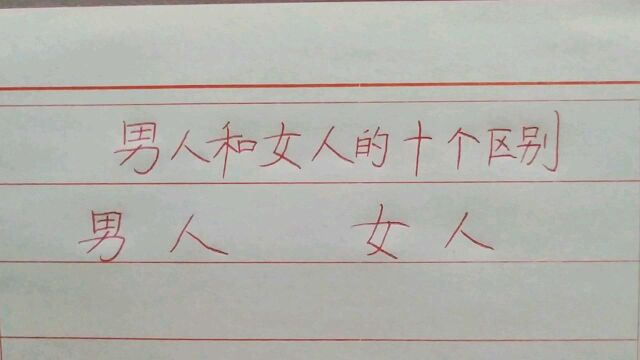 男人和女人的十个区别
男人 女人